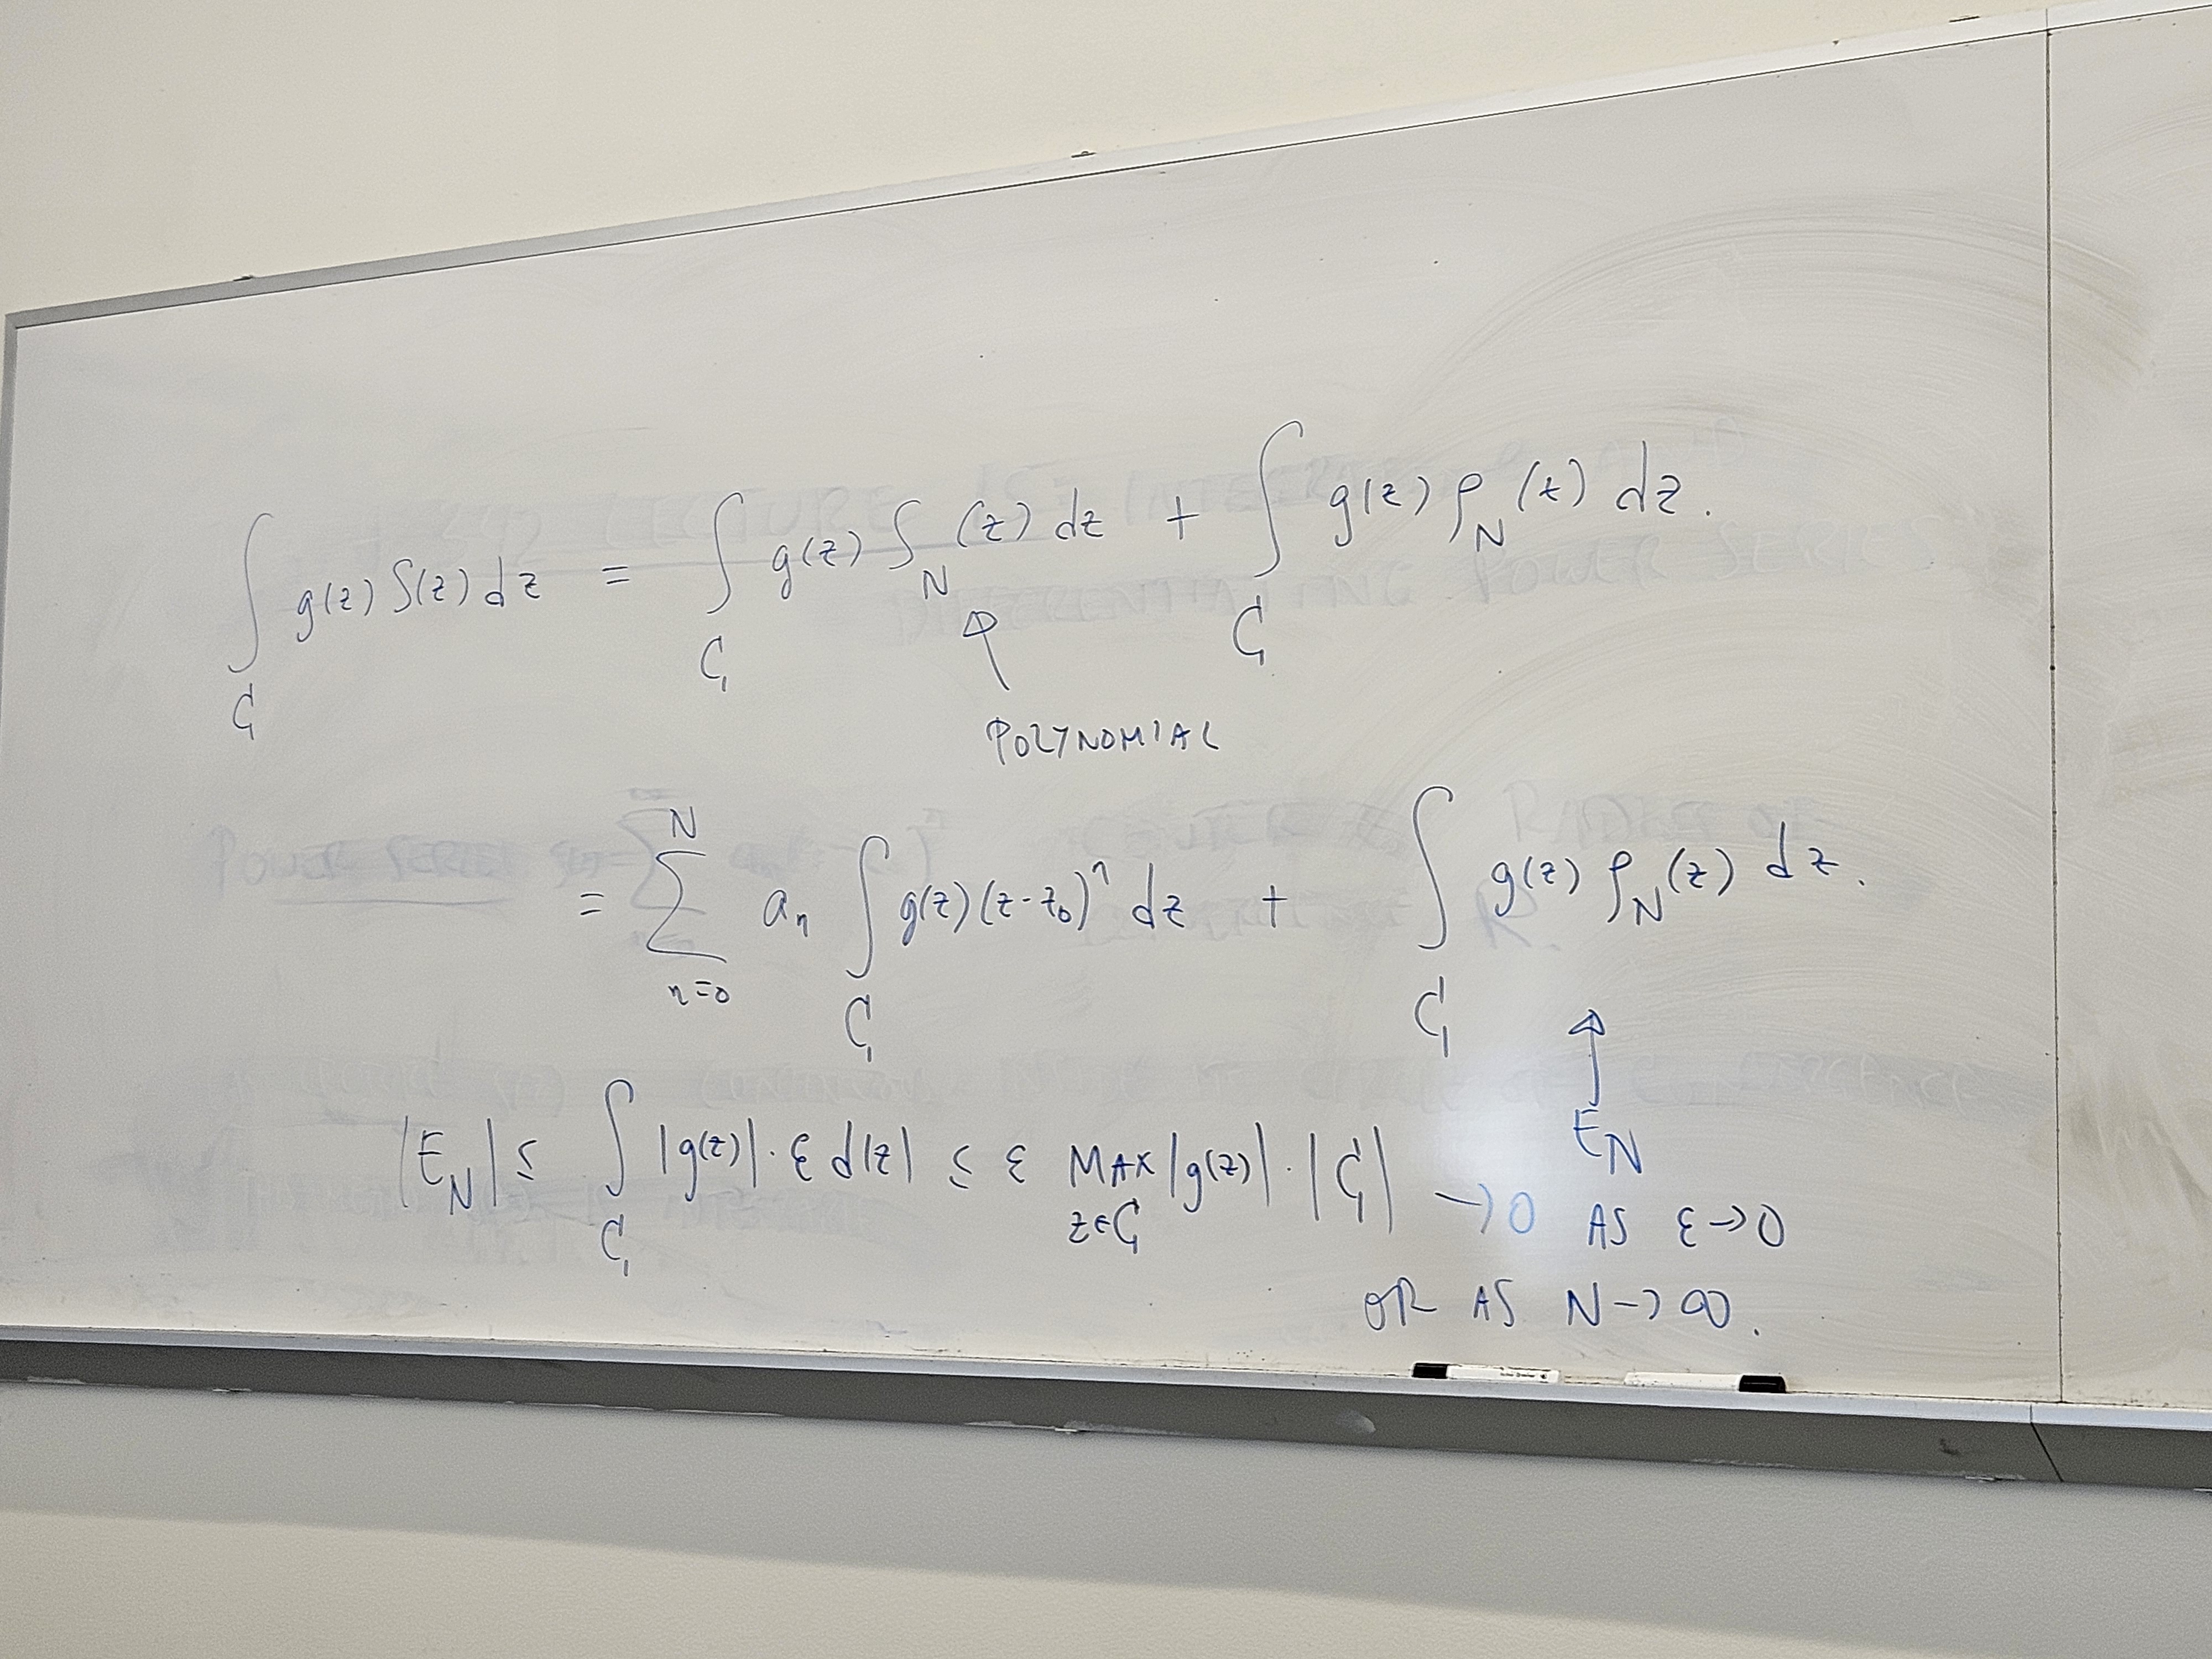 ∫_C₁ g(z) S(z) dz = ∫_C₁ g(z) S_N(z) dz + ∫_C₁ g(z) ρ_N(z) dz.
POLYNOMIAL
= ∑_{n=0}^{N} a_n ∫_C₁ g(z)(z-z₀)^n dz + ∫_C₁ g(z) ρ_N(z) dz.
E_N
|E_N| ≤ ∫_C₁ |g(z)|·ε d|z| ≤ ε MAX_{z∈C₁} |g(z)|·|C₁| → 0 AS ε→0
OR AS N→∞.